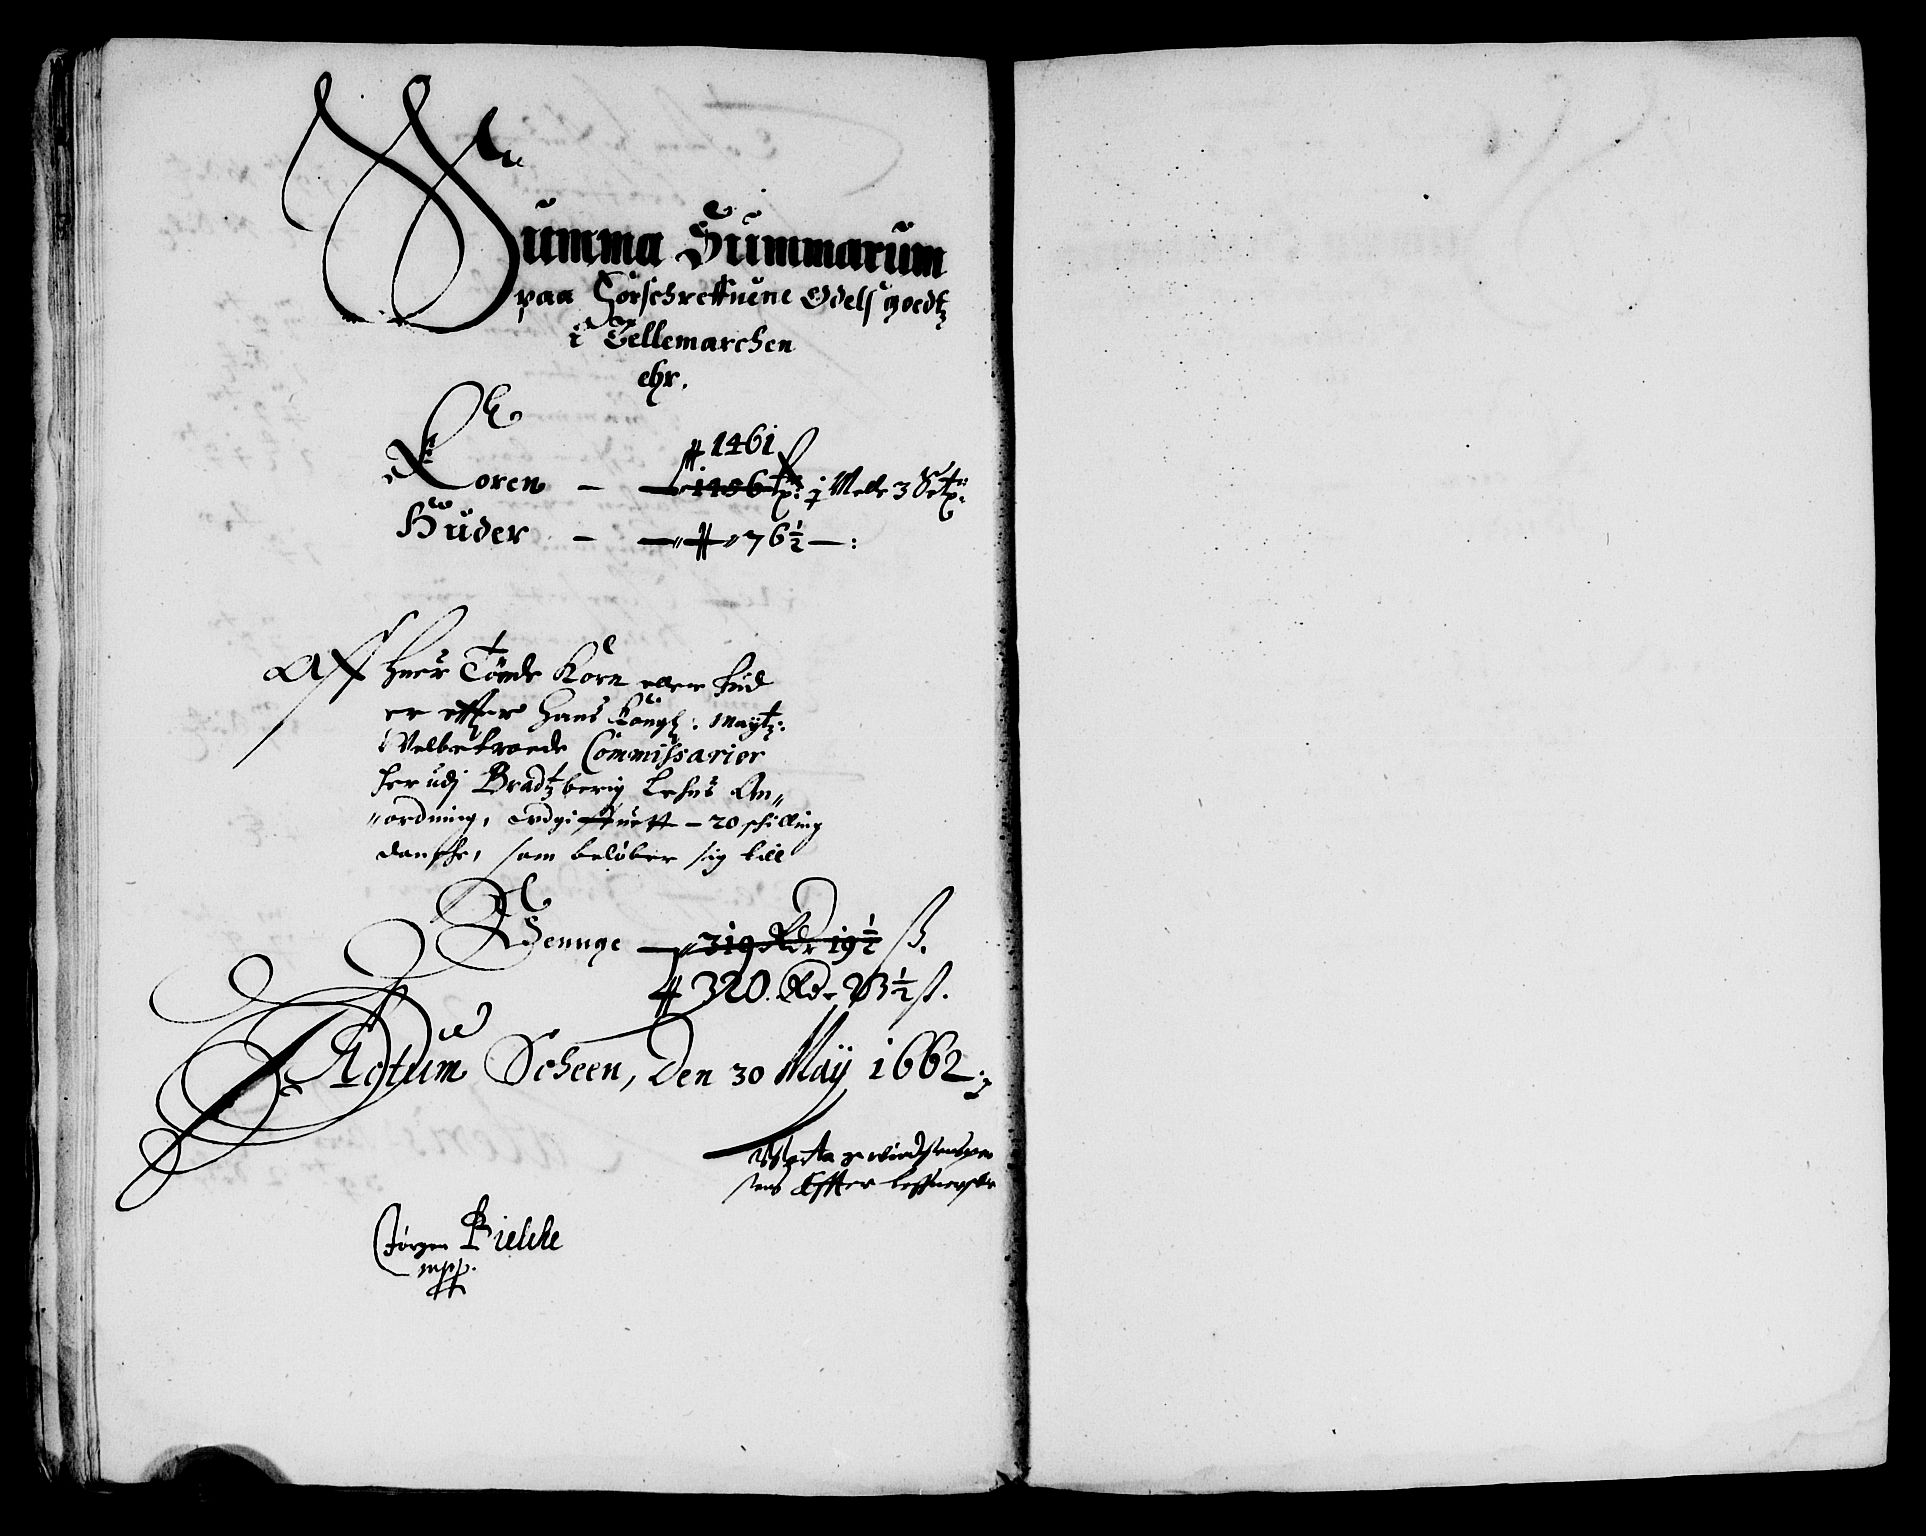 Summa Summarum
paa Forschreffuene Odels goedtz
i Tellemarchen
ehr.
1461
Koren — 1456 tr: j Melle 3 Setr:
Huder — 76½ — :
Aff huer Tønde Korn eller hud
er effter Hans Kongl: Mayts:
Velbetroede Commissarier
her udj Bradtzberig Lehns An„
„ordning, udgiffuett — 20 schilling
dansche, som beløber sig till
Penge — 319 Rdr 19½ ß.
320 Rdr 23½ ß.
Actum Scheen, Den 30 Maij 1662
Jørgen Bielche
mpp.